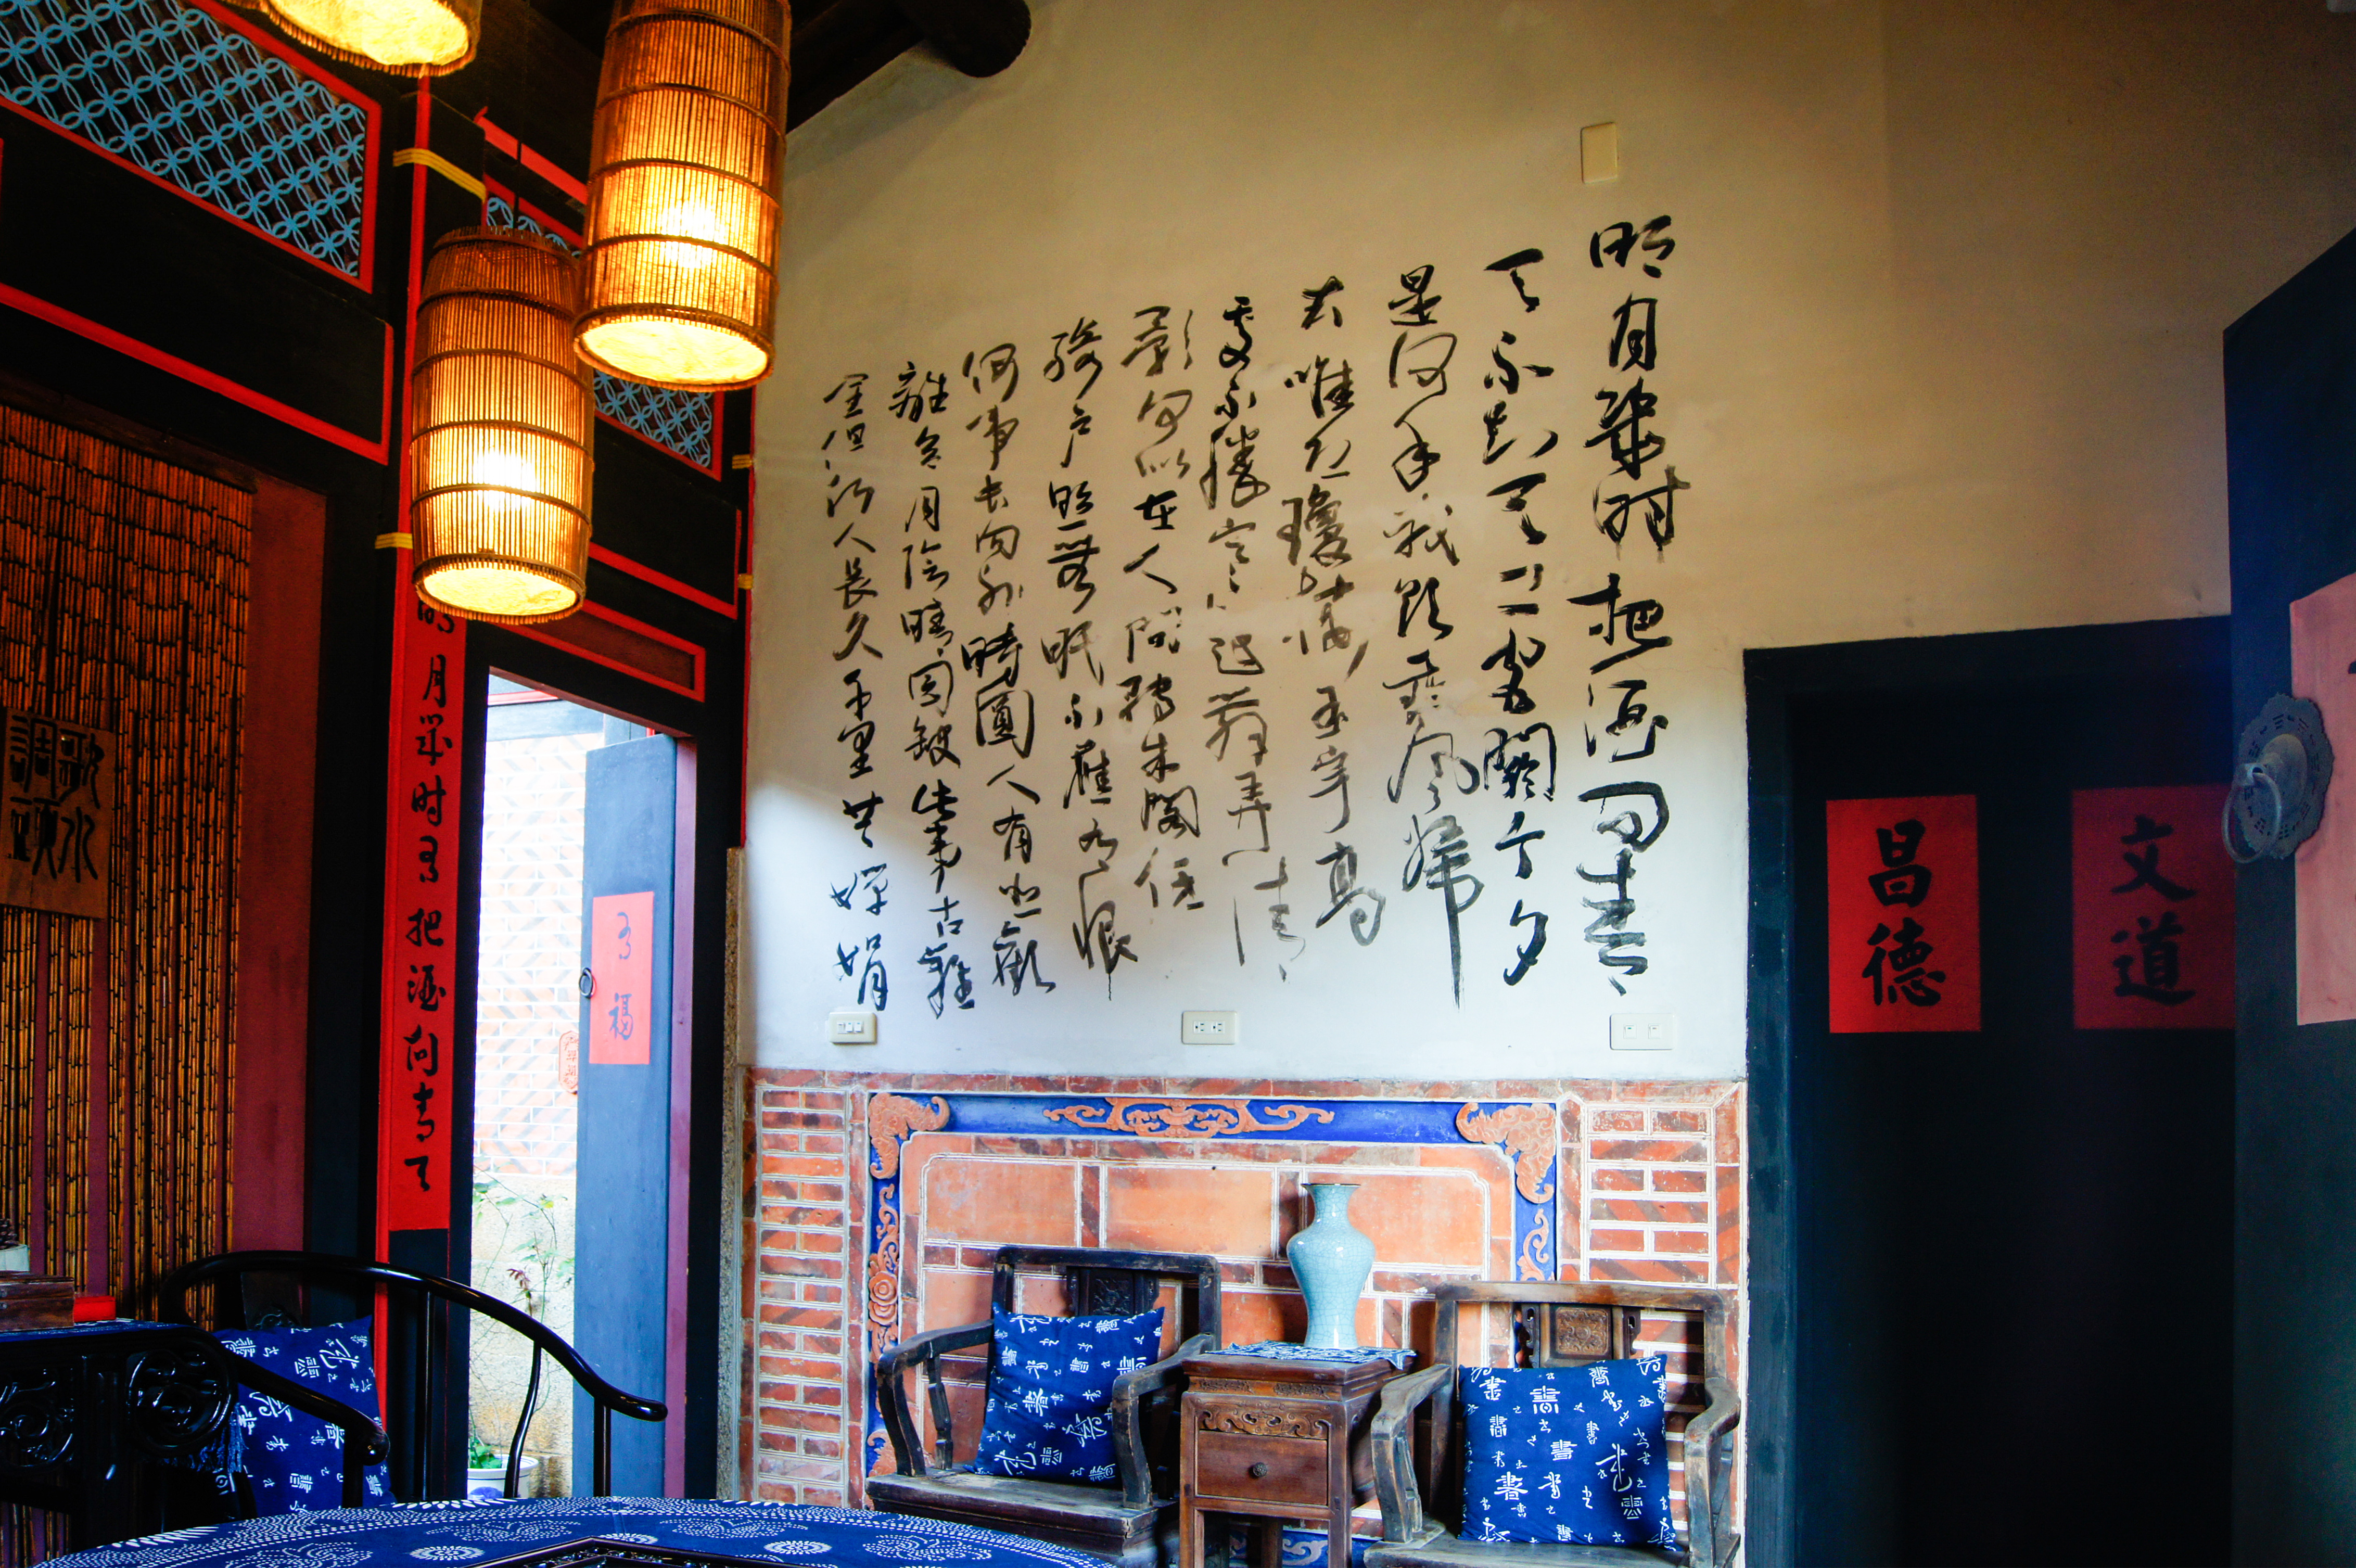 明月幾时把酒问青
天不知天上宮闕今夕
是何年我欲乘風歸
去唯恐瓊樓玉宇高
處不勝寒起舞弄清
影何似在人間轉朱閣低
綺户照無眠不應有恨
何事長向别時圓人有悲歡
離合月陰晴圆缺此事古難
全但願人長久千里共嬋娟
明月幾时有把酒问青天
歌水
調頭
文道
昌德
福